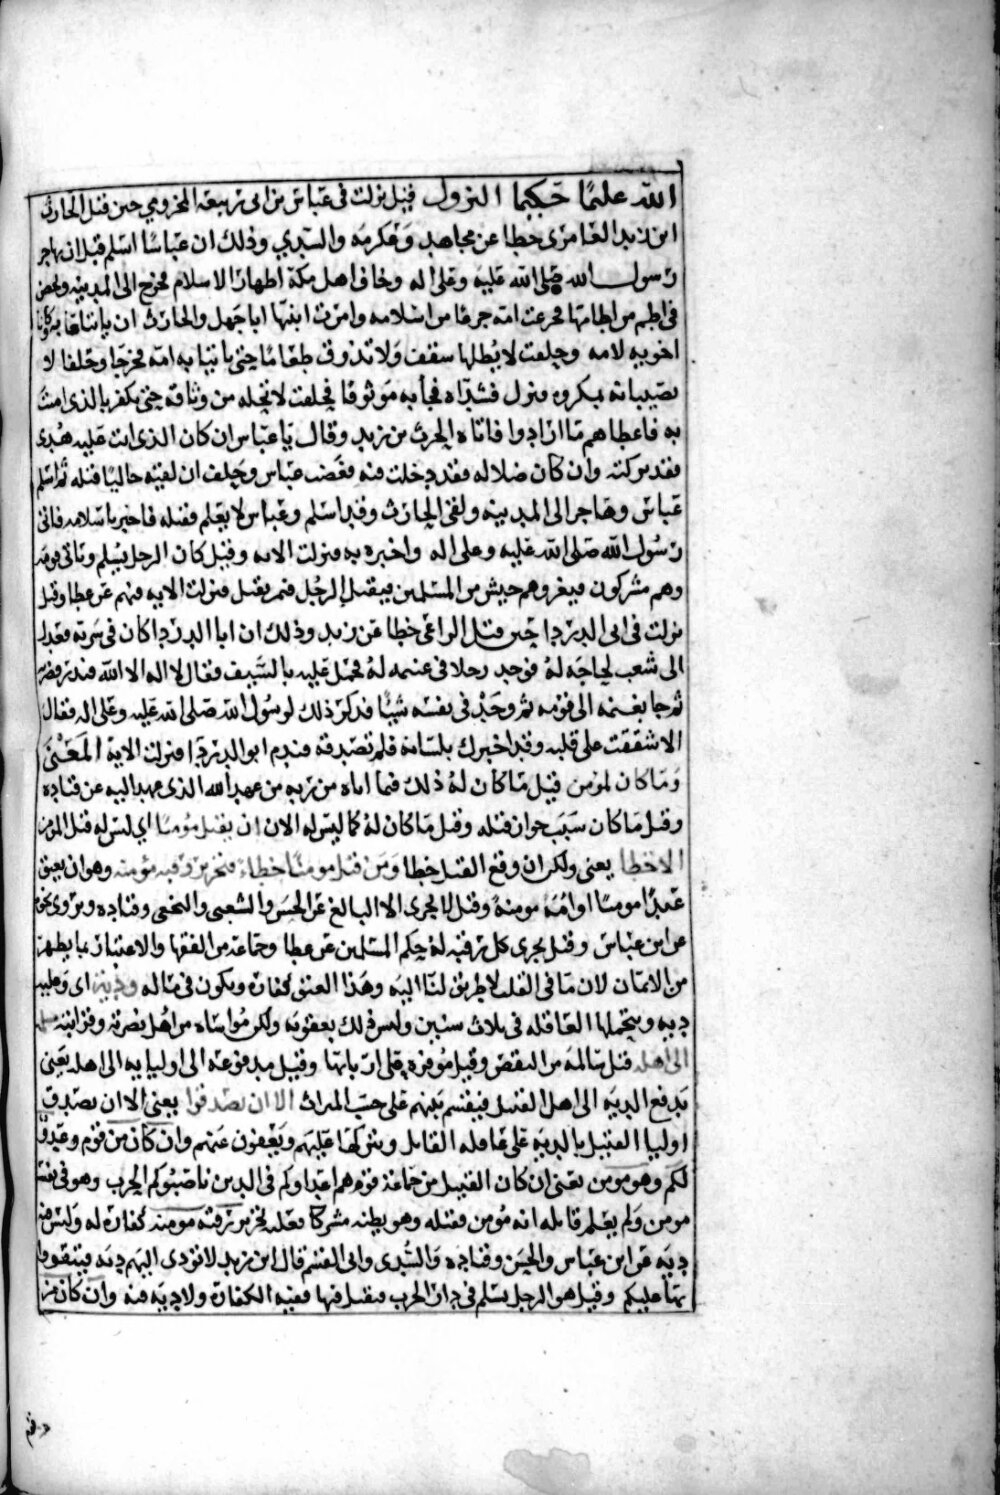 الله عليمًا حكيما النزول قيل نزلت في عياش بن ابي ربيعة المخزومي حين قتل الحارث
ابن زيد العامري خطا عن مجاهد وعكرمه والسدي وذلك ان عياشا اسلم قبل ان يهاجر
رسول الله صلى الله عليه وعلى اله وخاف اهل مكة اظهار الاسلام فخرج الى المدينه وتحصن
في اطم من اطامها فجزعت امه جزعا من اسلامه وامرت ابنها ابا جهل والحارث ان ياتياها به وكانا
اخويه لامه وحلفت لا يظلها سقف ولا تذوق طعاما حتى ياتيا به امه فخرجا وحلفا لا
يصيبانه بمكروه فنزل فشداه فجا به موثوقا فحلفت لا تحله من وثاقه حتى يكفر بالذي امنت
به فاعطاهم ما ارادوا فاتاه الحرث بن زيد وقال يا عياش ان كان الذي انت عليه هدى
فقد تركته وان كان ضلاله فقد دخلت فيه فغضب عياش وحلف ان لقيه خاليا قتله ثم اسلم
عياش وهاجر الى المدينه ولقي الحارث وقد اسلم وعياش لا يعلم فقتله فاخبر باسلامه فاتى
رسول الله صلى الله عليه وعلى اله واخبره به فنزلت الايه وقيل كان الرجل يسلم وياتي قومه
وهم مشركون فيغزوهم جيش من المسلمين فيقتل الرجل فمن يقتل فنزلت الايه فيهم عن عطا وقيل
نزلت في ابي الدردا حين قتل الراعي خطا عن زيد وذلك ان ابا الدردا كان في سريه فعدل
الى شعب لحاجه له فوجد رجلا في غنيمه له فحمل عليه بالسيف فقال لا اله الا الله فبدر فضربه
ثم جا بغنمه الى قومه ثم وجد في نفسه شيًا فذكر ذلك لرسول الله صلى الله عليه وعلى اله فقال
الا شققت على قلبه وقد اخبرك بلسانه فلم تصدقه فندم ابو الدردا فنزلت الاية المَعْنَى
وما كان لمومن قيل ما كان له ذلك فيما اتاه من ربه من عهد الله الذي عهد اليه عن قتاده
وقيل ما كان سبب جواز قتله وقيل ما كان له كما ليس له الان ان يقتل مؤمنًا اي ليس له قتل المومن
الا خطا يعني ولكن ان وقع القتل خطا ومن قتل مومنًا خطاء فتحرير رقبه مؤمنه وهو ان يعتق
عبدًا مومنًا او امةً مومنةً وقيل لا يجري الا البالغ عن الحسن والشعبي والنخعي وقتاده وروي نحوه
عن ابن عباس وقيل يجري كل رقبه له حكم المسلمين عن عطا وجماعة من الفقها والاعتبار بما يظهر
من الايمان لان ما في القلب لا طريق لنا اليه وهذا العتق كفارة ويكون في ماله ودية اي وعليه
ديه ويتحملها العاقله في ثلاث سنين وليس ذلك بعقوبه ولكن مواساه من اهل نصرته وقرابته مسلمه
الى اهله قيل سالمة من النقص وقيل موفرة على اربابها وقيل مدفوعة الى اوليايه الى اهله يعني
تدفع الديه الى اهل القتيل فيقسم بينهم على حسب الميراث الا ان يصدقوا يعني الا ان يصدق
اوليا القتيل بالديه على عاقله القاتل ويتركها عليهم ويعفون عنهم وان كان من قوم وعدو
لكم وهو مومن يعني ان كان القتيل من جماعة قوم هم اعداوكم في الدين ناصبوكم الحرب وهو في نفسه
مومن ولم يعلم قاتله انه مؤمن فقتله وهو يظنه مشركا فعليه تحرير رقبه مومنه كفارة له وليس فيه
ديه عن ابن عباس والحسن وقتاده والسدي وابي القسم قال ابن زيد لا تؤدى اليهم ديه فيتقووا
بها عليكم وقيل هو الرجل يسلم في دار الحرب فيقتل فيها ففيه الكفارة ولا ديه فيه وان كان من
قوم